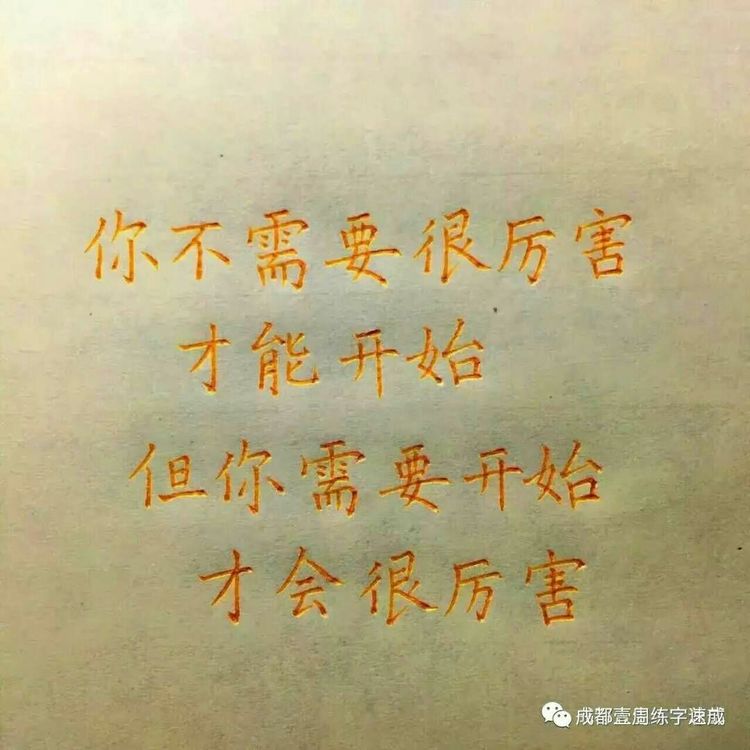 你不需要很厉害
才能开始
但你需要开始
才会很厉害
成都壹周练字速成